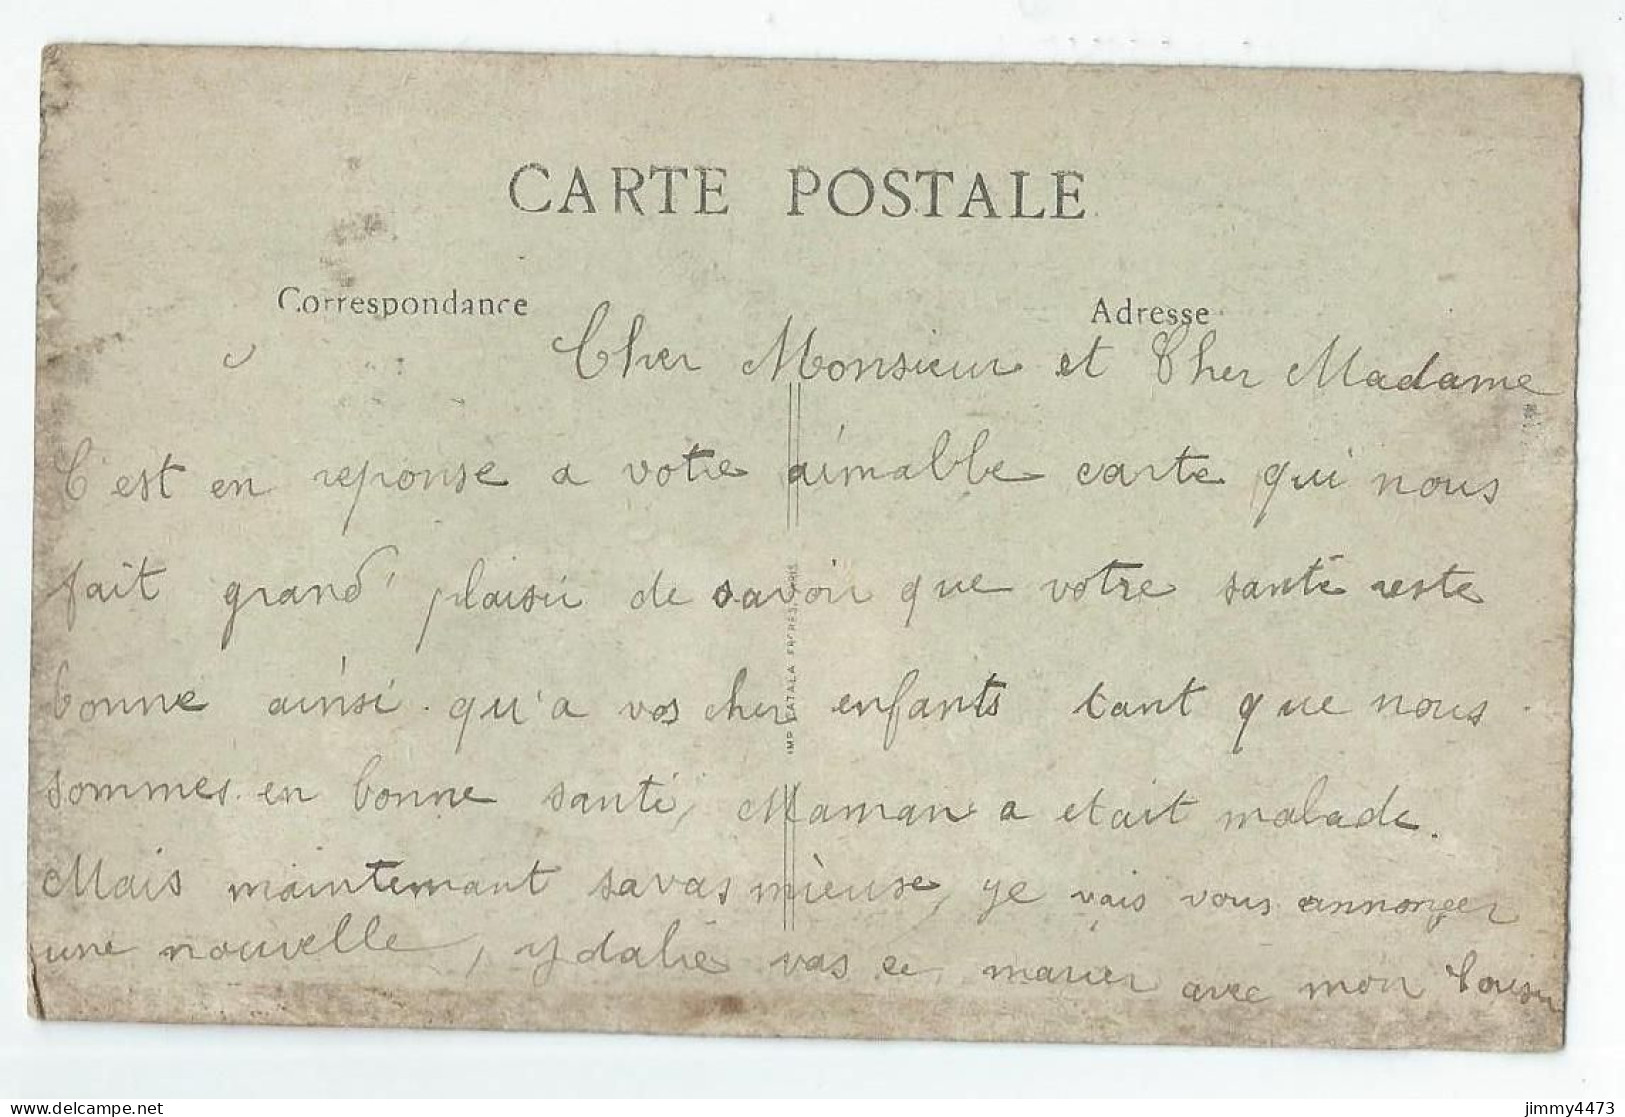 CARTE POSTALE
Correspondance
Adresse
Cher Monsieur et Cher Madame
C'est en reponse a votre aimable carte qui nous
fait grand plaisir de savoir que votre santé reste
bonne ainsi qu'a vos cher enfants tant que nous
sommes en bonne santé, Maman a etait malade.
Mais maintenant savas mieuse, je vais vous annonçer
une nouvelle, ydalie vas ce marier avec mon Cousin
IMP. CATALA FRERES, PARIS
delcampe.net
jimmy4473